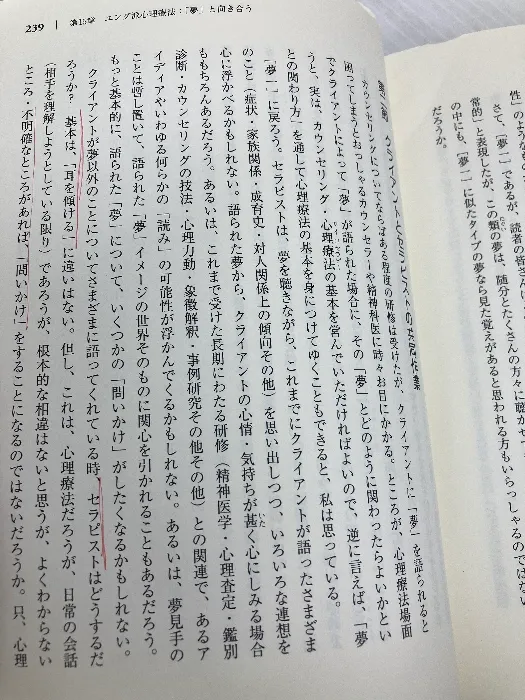 239　第15章　ユング派心理療法:「夢」と向き合う
性」のようなもの
さて、「夢一」であるが、読者の皆さん
常的」と表現したが、この類の夢は、随分とたくさんの方々に聴かせ
の中にも、「夢一」に似たタイプの夢なら見た覚えがあると思われる方もいらっ
だろうか。
クライアントとセラピストの共同作業
カウンセリングについてならばある程度の研修は受けたが、クライアントに「夢」を語られると
困ってしまうとおっしゃるカウンセラーや精神科医に時々お目にかかる。ところが、心理療法場面
でクライアントによって「夢」が語られた場合に、その「夢」とどのように関わったらよいかとい
うと、実は、カウンセリング・心理療法の基本を営んでいただければよいので、逆に言えば、「夢
との関わり方」を通して心理療法の基本を身につけてゆくこともできると、私は思っている。
「夢一」に戻ろう。セラピストは、夢を聴きながら、これまでにクライアントが語ったさまざま
のこと(症状、家族関係・成育史・対人関係上の傾向その他)を思い出しつつ、いろいろな連想を
心に浮かべるかもしれない。語られた夢から、クライアントの心情・気持ちが甚く心にしみる場合
ももちろんあるだろう。あるいは、これまで受けた長期にわたる研修(精神医学・心理査定・鑑別
診断・カウンセリングの技法・心理力動・象徴解釈・事例研究その他その他)との関連で、あるア
イディアやいわゆる何らかの「読み」の可能性が浮かんでくるかもしれない。あるいは、夢見手の
ことは暫し置いて、語られた「夢」イメージの世界そのものに関心を引かれることもあるだろう。
もっと基本的に、語られた「夢」について、いくつかの「問いかけ」がしたくなるかもしれない。
クライアントが夢以外のことについてさまざまに語ってくれている時、セラピストはどうするだ
ろうか? 基本は、「耳を傾ける」に違いはない。但し、これは、心理療法だろうが、日常の会話
(相手を理解しようとしている限り)であろうが、根本的な相違はないと思うが、よくわからない
ところ、不明確なところがあれば、「問いかけ」をすることになるのではないだろうか。只、心理